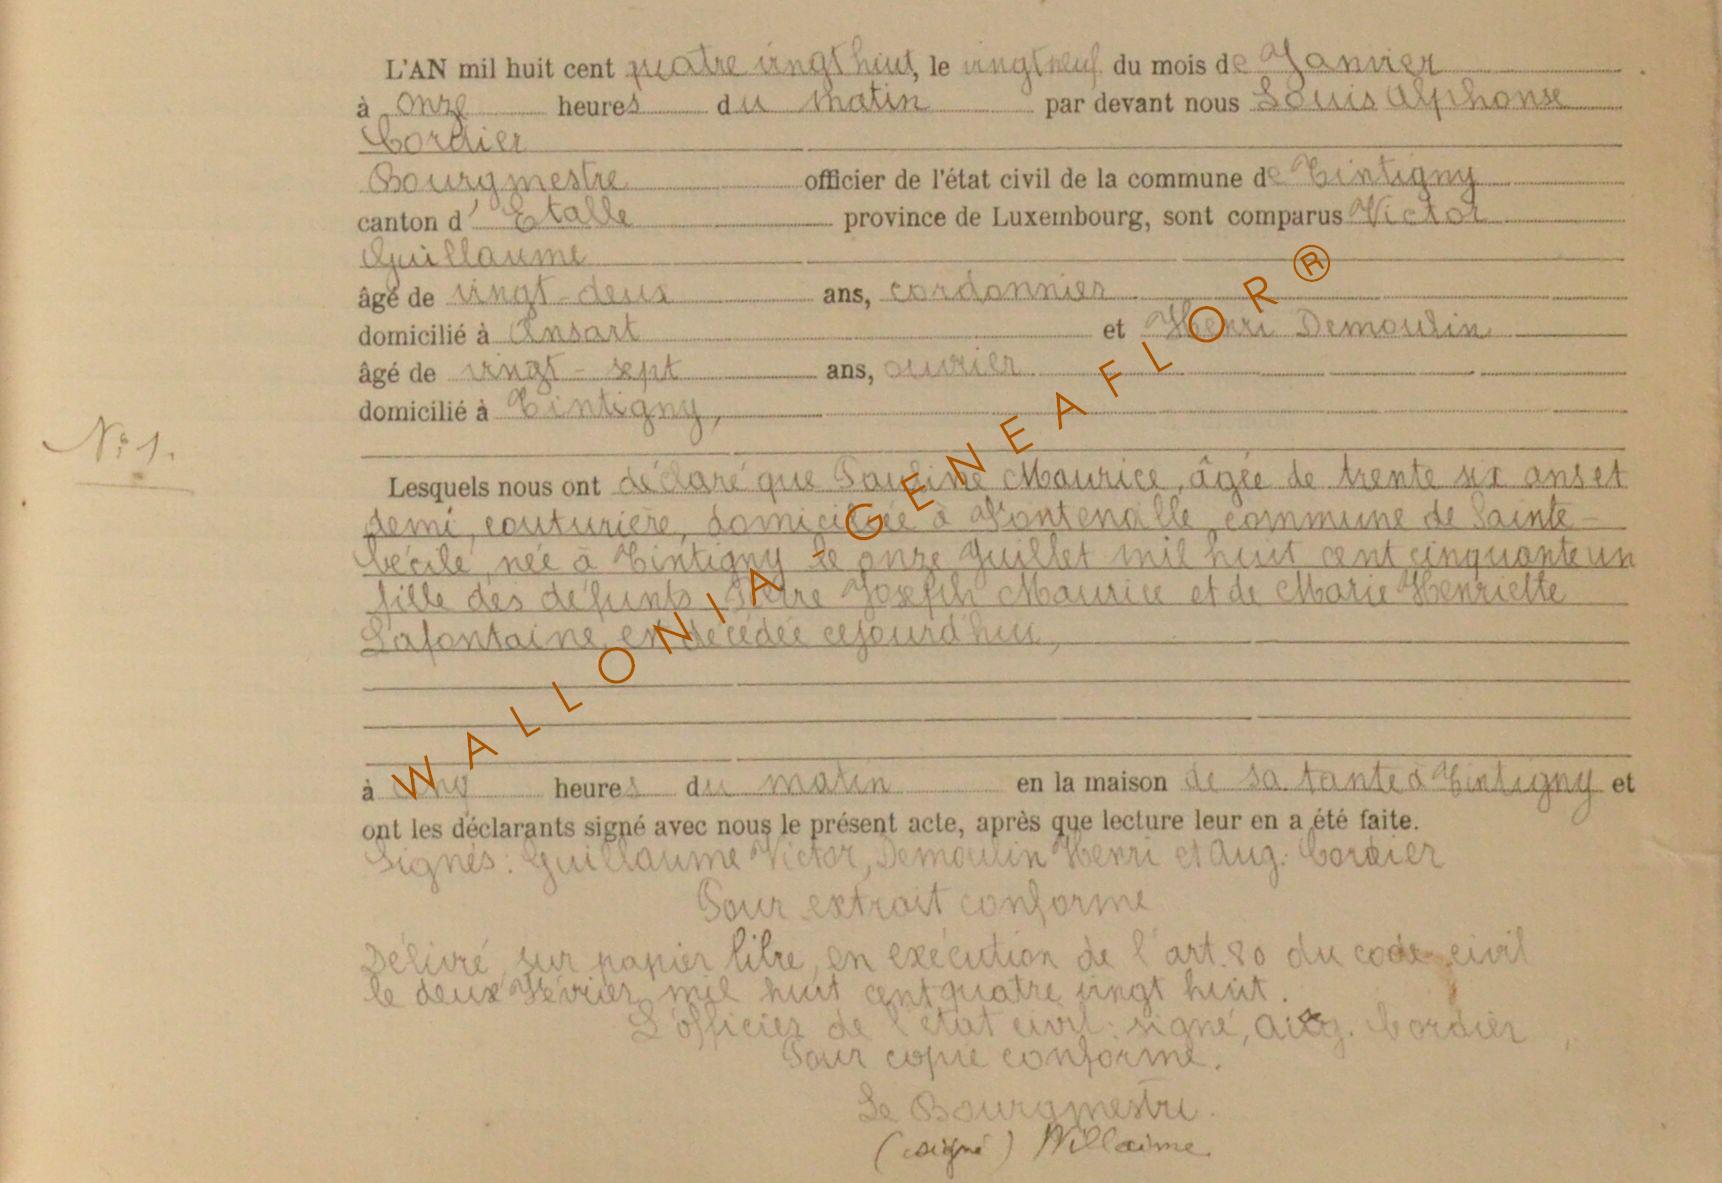 L'AN mil huit cent quatre vingt huit, le vingt neuf du mois de Janvier
à onze heures du matin par devant nous Louis Alphonse
Cordier
Bourgmestre officier de l'état civil de la commune de Tintigny
canton d'Etalle province de Luxembourg, sont comparus Victor
Guillaume
âgé de vingt-deux ans, cordonnier
domicilié à Ansart et Henri Demoulin
âgé de vingt-sept ans, ouvrier
domicilié à Tintigny,
N° 1.
Lesquels nous ont déclaré que Pauline Maurice, âgée de trente six ans et
demi, couturière, domiciliée à Fontenoille, commune de Sainte-
Cécile, née à Tintigny le onze Juillet mil huit cent cinquante un
fille des défunts Pierre Joseph Maurice et de Marie Henriette
Lafontaine, est décédée cejourd'hui,
à cinq heures du matin en la maison de sa tante à Tintigny et
ont les déclarants signé avec nous le présent acte, après que lecture leur en a été faite.
Signés: Guillaume Victor, Demoulin Henri et Aug. Cordier
Pour extrait conforme
Délivré, sur papier libre, en exécution de l'art. 80 du code civil
le deux Février mil huit cent quatre vingt huit.
L'officier de l'état civil: signé, Aug. Cordier
Pour copie conforme.
Le Bourgmestre.
(signé) Willaime
WALLONIA - GENEAFLOR®